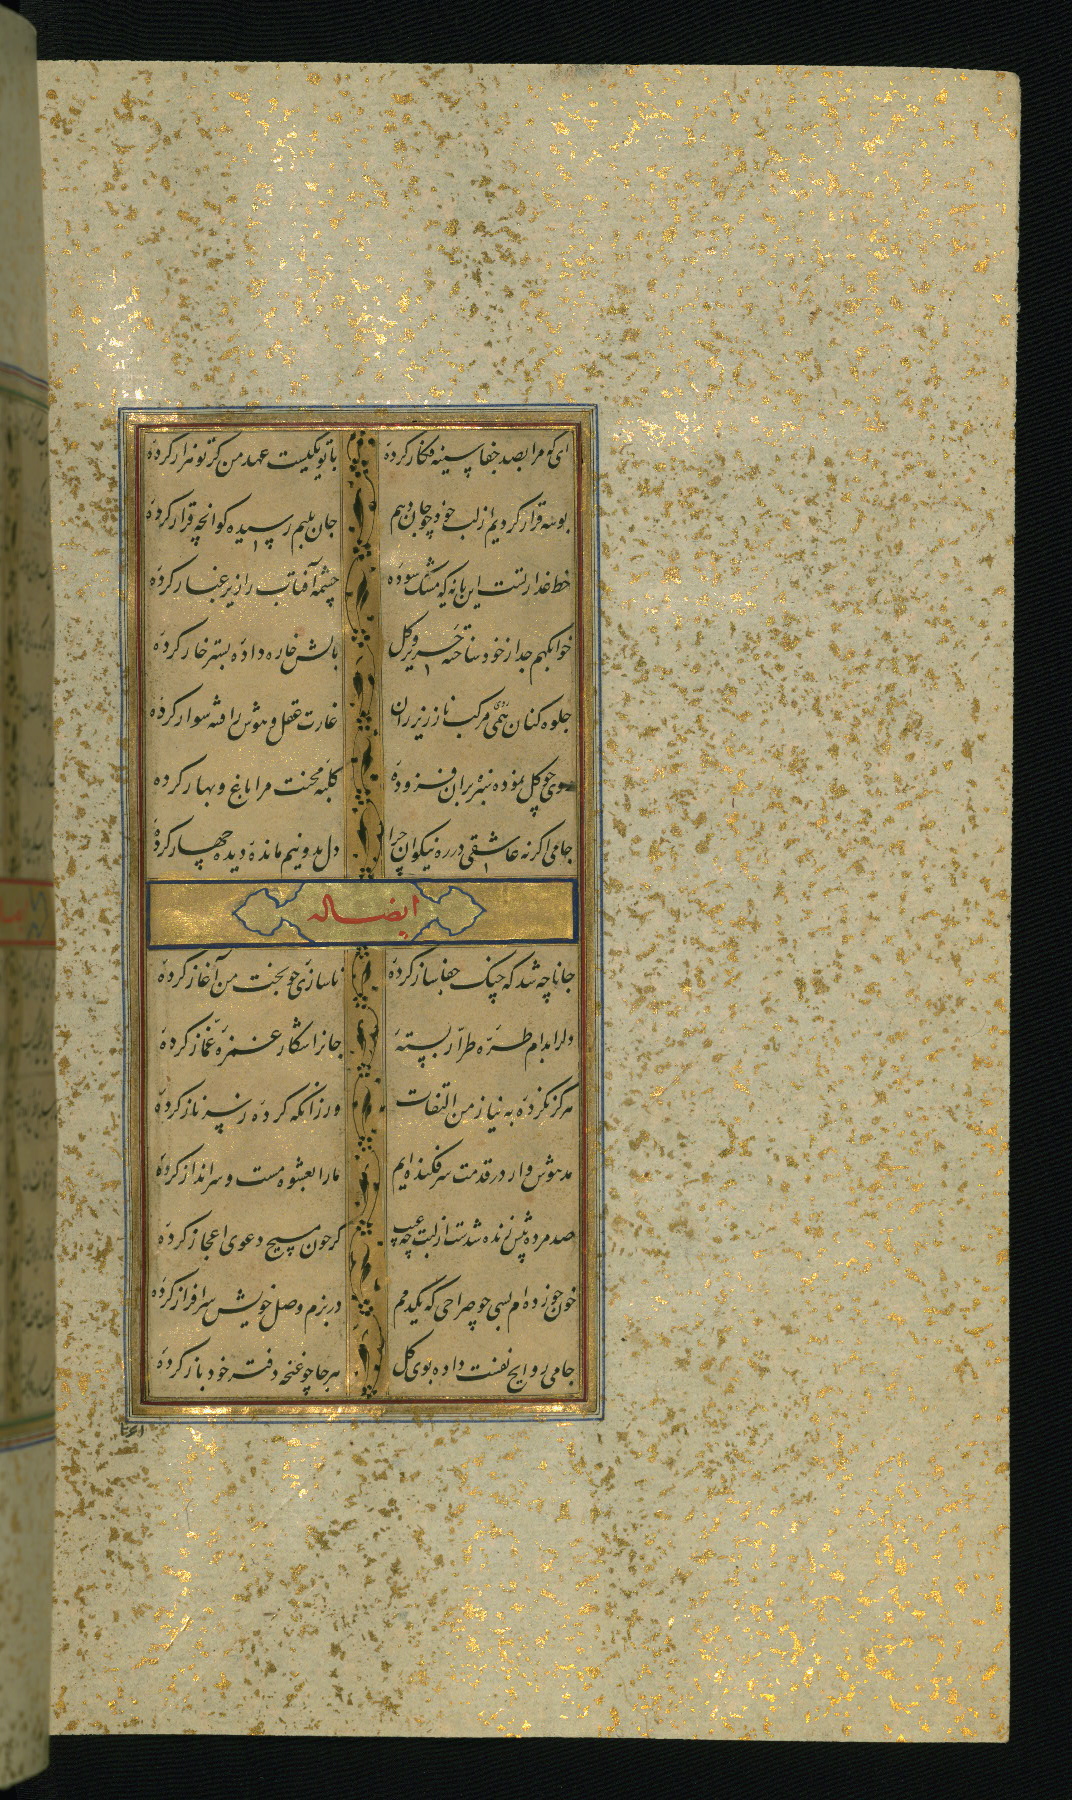 ای که مرا بصد جفا سینه فکار کرده با تو یکیست عهد من کر تو هزار کرده
بوسه قرار کردیم از لب خود چو جان دهم جان بلبم رسیده کو انچه قرار کرده
خط عذار تست این یا نه که مشک سوده چشمه آفتاب را زیر غبار کرده
خوابکهم جدا ز خود ساخته حریر و کل بالش خاره داده بستر خار کرده
جلوه کنان همی روی مرکب ناز زیر ران غارت عقل و هوش را فتنه سوار کرده
روی چو کل نموده سبزه بران فزوده کلبه محنت مرا باغ و بهار کرده
جامی اکر نه عاشقی در ره نیکوان چرا دل بدو نیم مانده دیده چهار کرده
ایضا له
جانا چه شد که چنک جفا ساز کرده ناسازی چو بخت من آغاز کرده
دلرا بدام طره طرار بسته جانرا شکار غمزه غماز کرده
هرکز نکرده به نیاز من التفات ور زانکه کرده ز سر ناز کرده
مدهوش وار در قدمت سر فکنده ایم ما را بعشوه مست و سرانداز کرده
صد مرده پیش زنده شدست از لبت چه عیب کر چون مسیح دعوی اعجاز کرده
خون خورده ام بسی چو صراحی که یکدمم در بزم وصل خویش سرافراز کرده
جامی روایح نفست داده بوی کل هر جا چو غنچه دفتر خود باز کرده